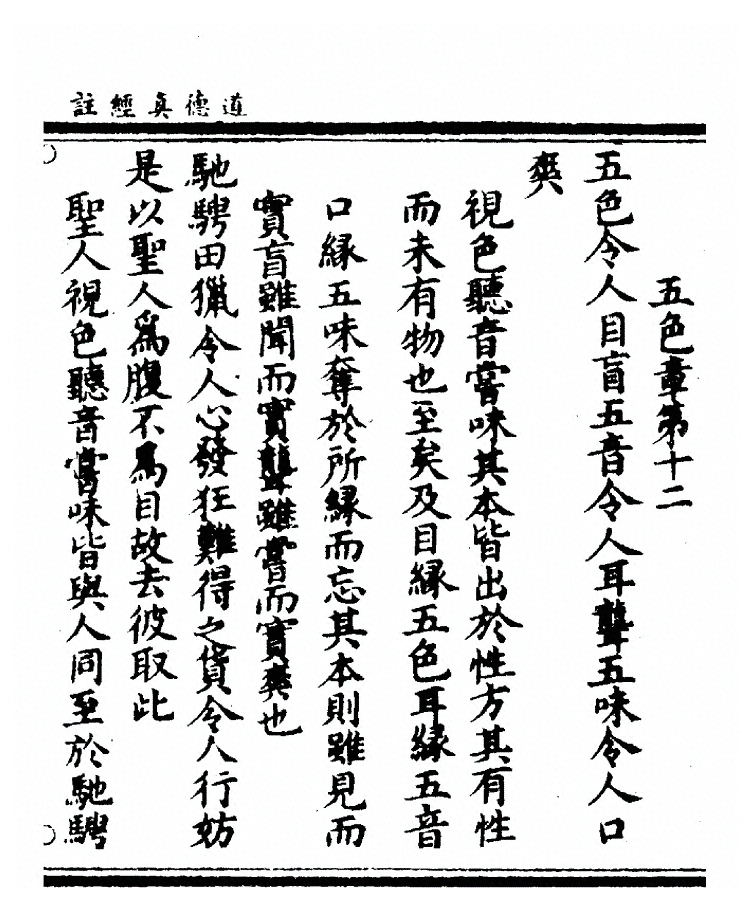 道德眞經註
五色章第十二
五色令人目盲五音令人耳聾五味令人口
爽
視色聽音嘗味其本皆出於性方其有性
而未有物也至矣及目緣五色耳緣五音
口緣五味奪於所緣而忘其本則雖見而
實盲雖聞而實聾雖嘗而實爽也
馳騁田獵令人心發狂難得之貨令人行妨
是以聖人為腹不為目故去彼取此
聖人視色聽音嘗味皆與人同至於馳騁